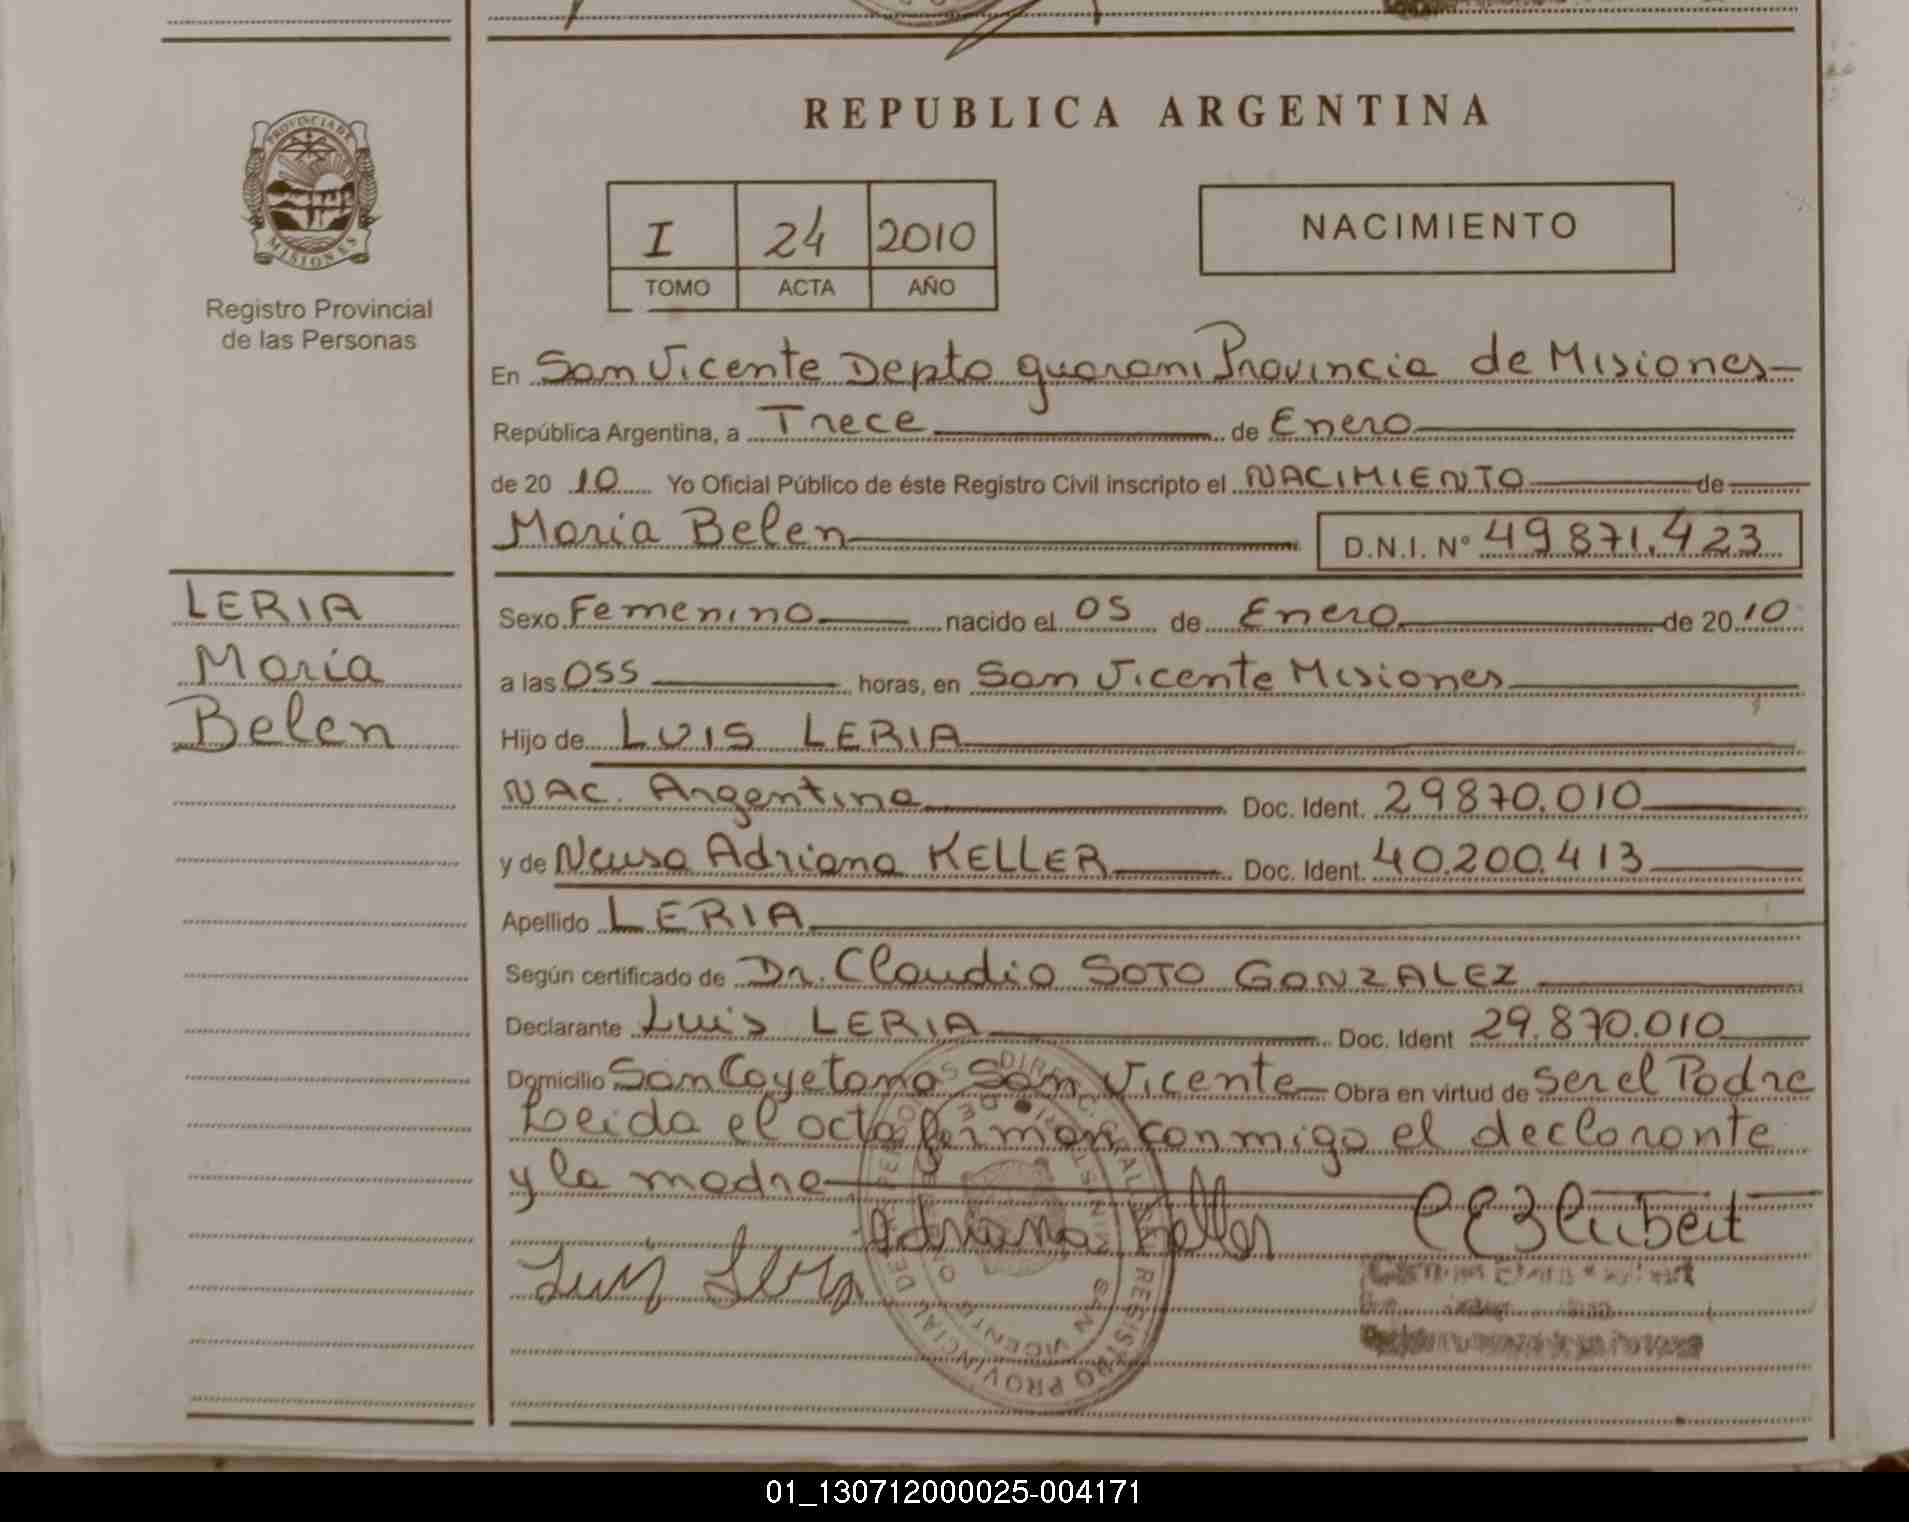 REPUBLICA ARGENTINA
PROVINCIA DE
MISIONES
Registro Provincial
de las Personas
I 24 2010
TOMO ACTA AÑO
NACIMIENTO
En San Vicente Depto guarani Provincia de Misiones
República Argentina, a Trece de Enero
de 20 10 Yo Oficial Público de éste Registro Civil inscripto el NACIMIENTO de
Maria Belen D.N.I. Nº 49871.423
LERIA
María
Belen
Sexo Femenino nacido el 05 de Enero de 20 10
a las 055 horas, en San Vicente Misiones
Hijo de LUIS LERIA
NAC. Argentina Doc. Ident. 29870.010
y de Neusa Adriana KELLER Doc. Ident. 40.200.413
Apellido LERIA
Según certificado de Dr. Claudio SOTO GONZALEZ
Declarante Luis LERIA Doc. Ident 29.870.010
Domicilio San Cayetano San Vicente Obra en virtud de ser el Padre
Leida el acta firman conmigo el declarante
y la madre
Adriana Keller
Luis Leria
REGISTRO PROVINCIAL DE
SAN VICENTE
01_130712000025-004171